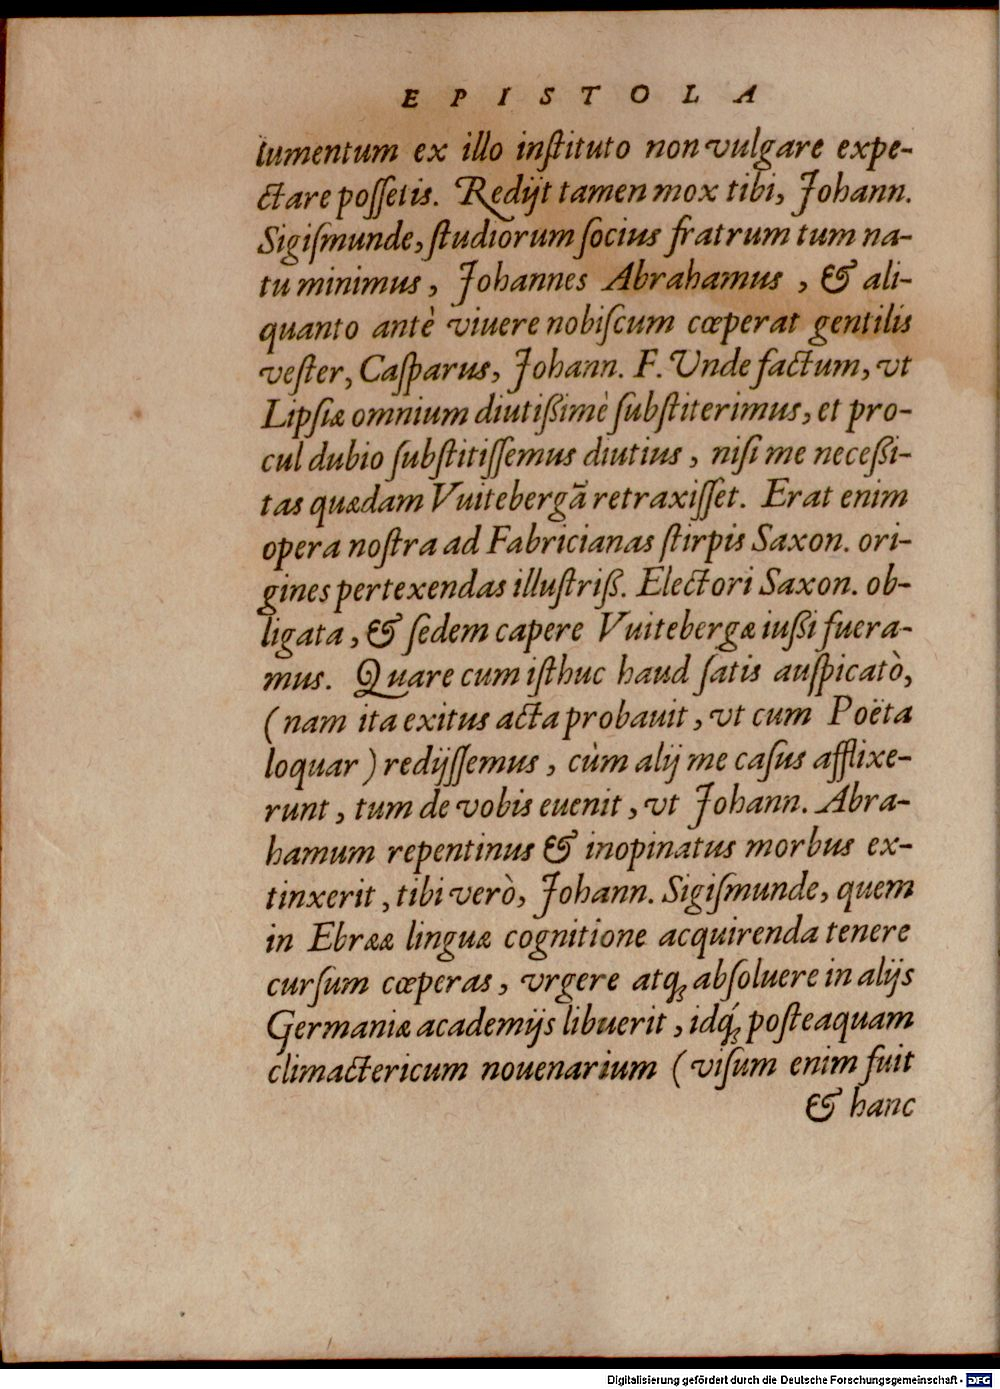 EPISTOLA
lumentum ex illo inſtituto non vulgare expe-
ctare poſſetis. Redijt tamen mox tibi, Johann.
Sigiſmunde, ſtudiorum ſocius fratrum tum na-
tu minimus, Johannes Abrahamus, & ali-
quanto antè viuere nobiſcum cœperat gentilis
veſter, Caſparus, Johann. F. Unde factum, vt
Lipſiæ omnium diutißimè ſubſtiterimus, et pro-
cul dubio ſubſtitiſſemus diutius, niſi me neceßi-
tas quædam Vuitebergā retraxiſſet. Erat enim
opera noſtra ad Fabricianas ſtirpis Saxon. ori-
gines pertexendas illuſtriß. Electori Saxon. ob-
ligata, & ſedem capere Vuitebergæ iußi fuera-
mus. Quare cum iſthuc haud ſatis auſpicatò,
(nam ita exitus acta probauit, vt cum Poëta
loquar) redijſſemus, cùm alij me caſus afflixe-
runt, tum de vobis euenit, vt Johann. Abra-
hamum repentinus & inopinatus morbus ex-
tinxerit, tibi verò, Johann. Sigiſmunde, quem
in Ebrææ linguæ cognitione acquirenda tenere
curſum cœperas, vrgere atq; abſoluere in alijs
Germaniæ academijs libuerit, idq́; poſteaquam
climactericum nouenarium (viſum enim fuit
& hanc
Digitalisierung gefördert durch die Deutsche Forschungsgemeinschaft - DFG